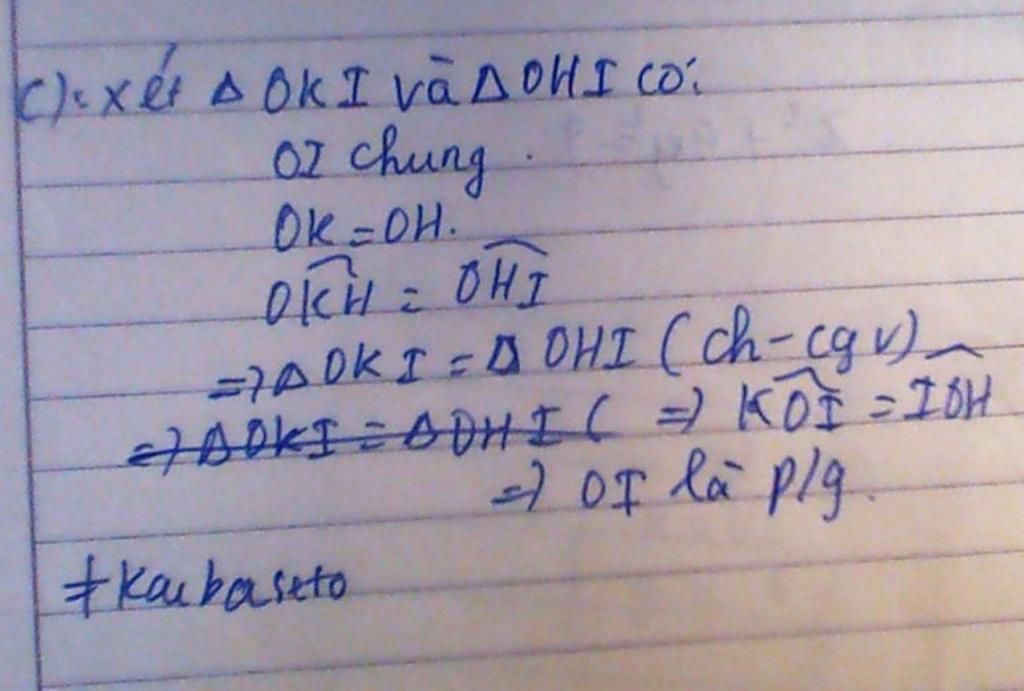 c): xét Δ OKI và Δ OHI có:
OI chung.
OK = OH.
OKH = OHI
=> Δ OKI = Δ OHI (ch-cgv)
=> ΔOKI = ΔOHI ( => KOI = IOH
=> OI là p/g.
#Kaibaseto